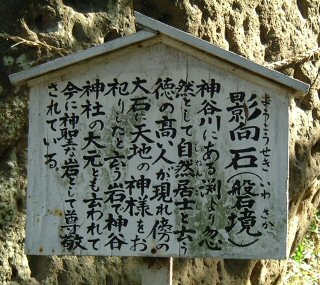 影向石(磐境)
ようこうせき いわさか
神谷川にある渕より忽
然として自然居士と云う
徳の高い人が現れ傍の
大石に天地の神様をお
祀りしたと云う岩で神谷
神社の大元とも云われて
今に神聖な岩として尊敬
されている